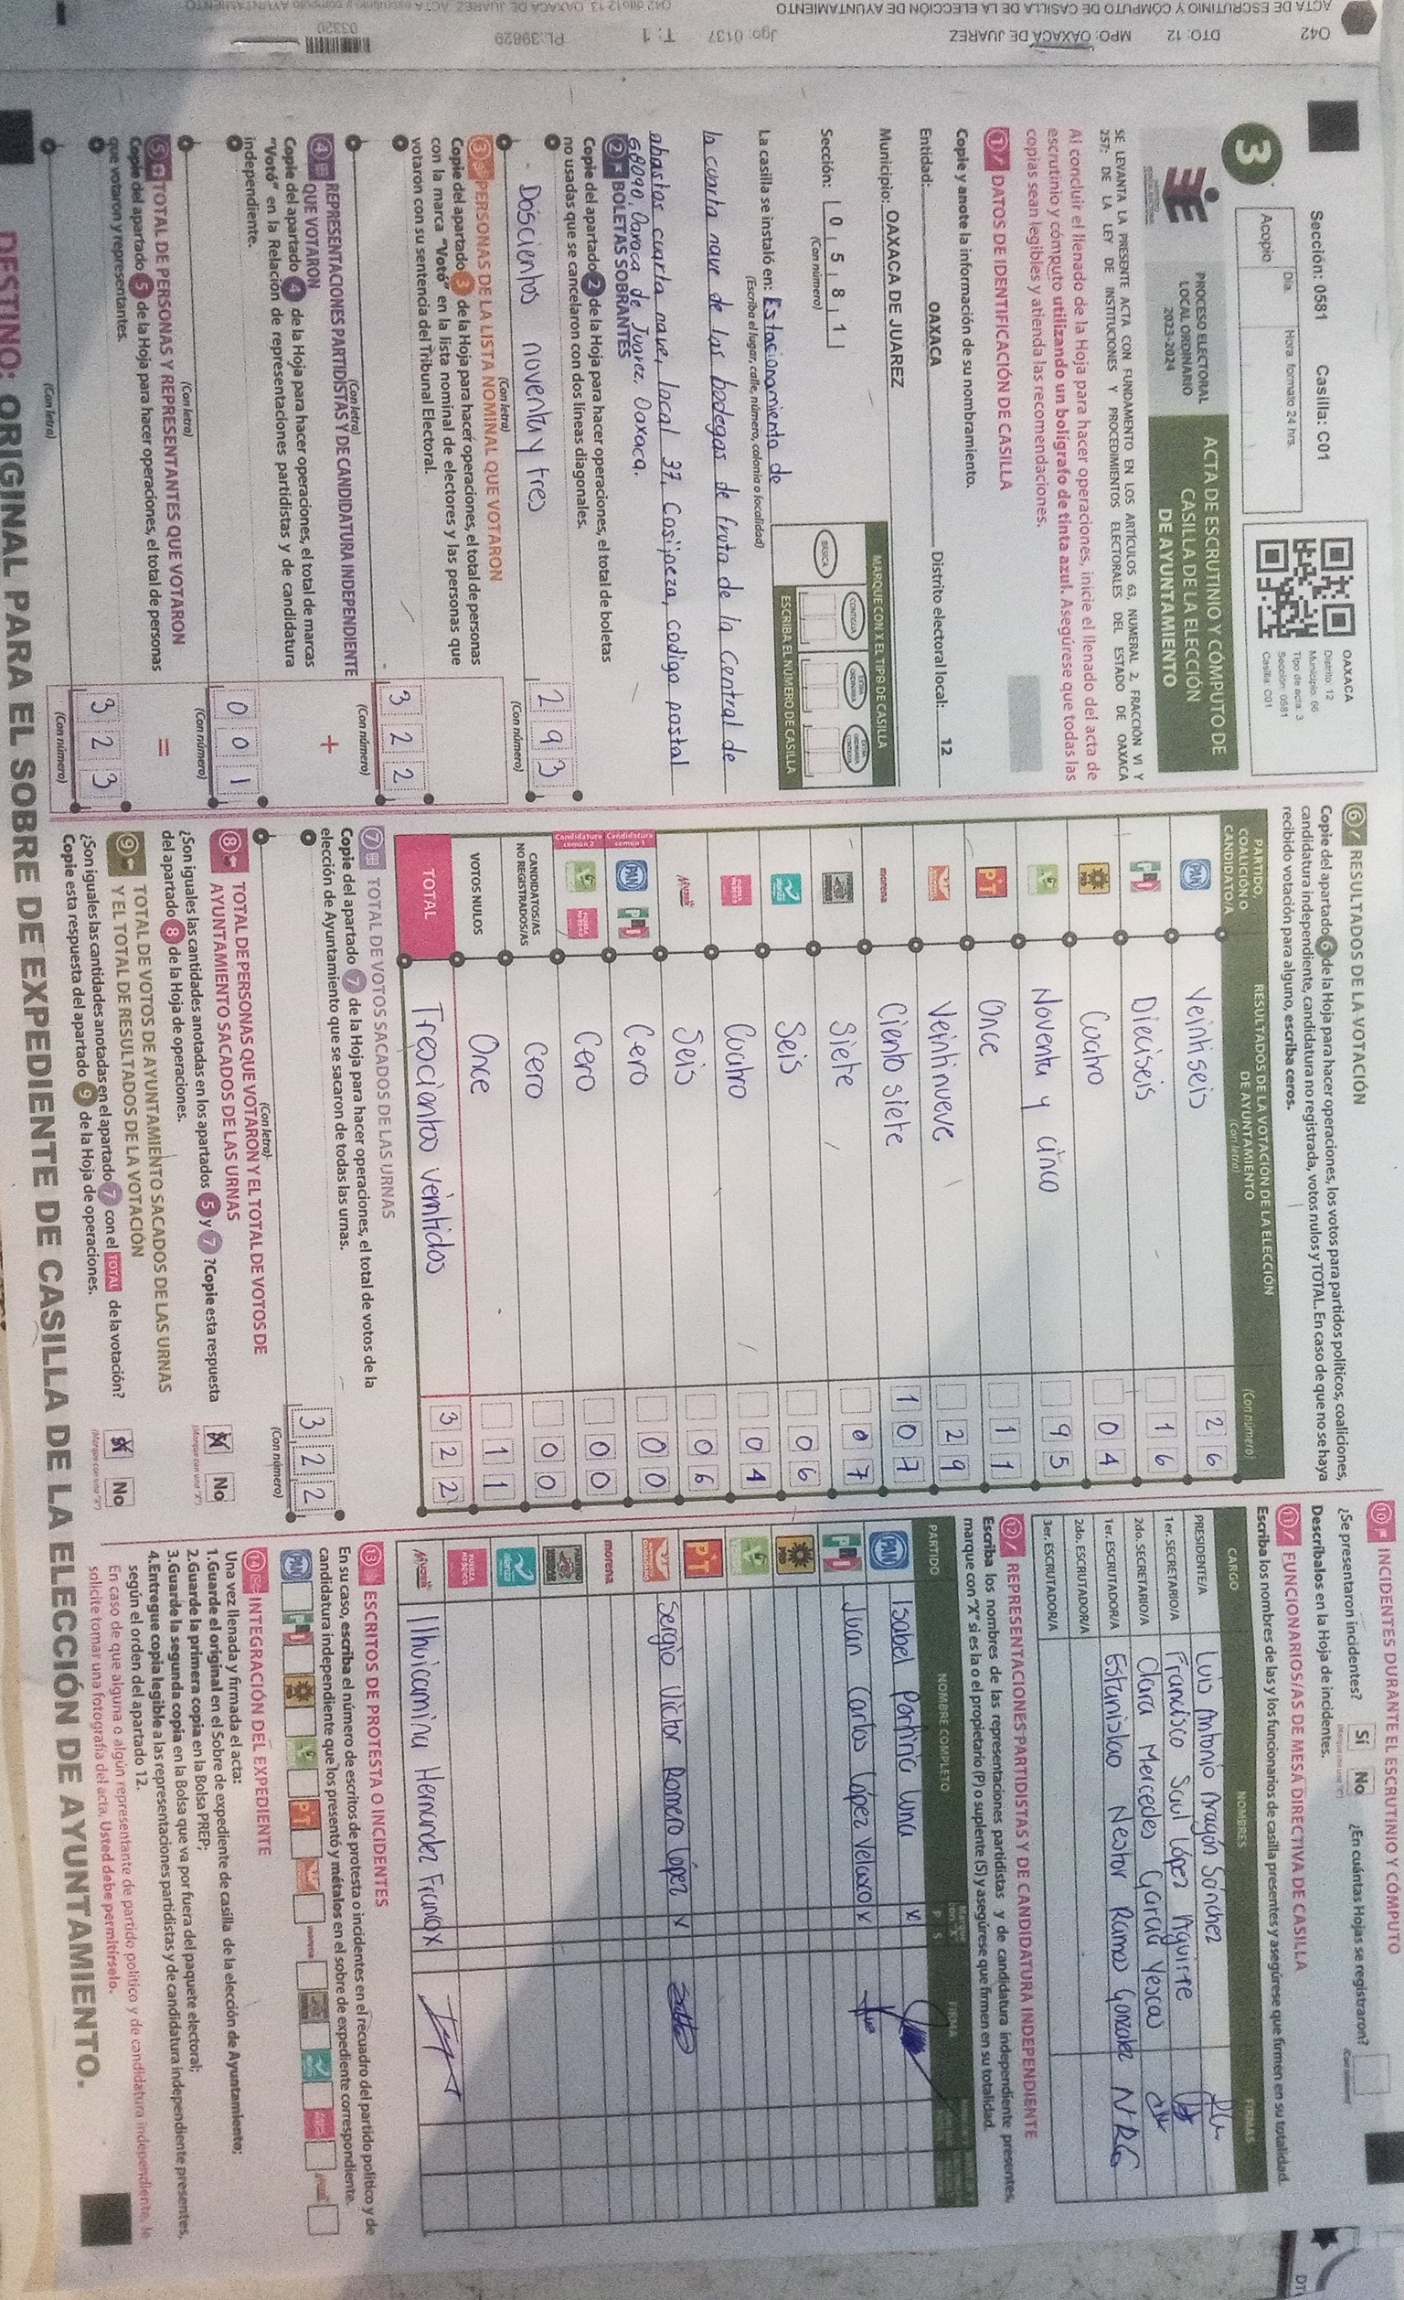 042 DTO: 12 MPO: OAXACA DE JUAREZ Jgo: 0137 T: 1 PL:39829
03320
ACTA DE ESCRUTINIO Y CÓMPUTO DE CASILLA DE LA ELECCIÓN DE AYUNTAMIENTO
Sección: 0581 Casilla: C01
Día Hora formato 24 hrs.
Acopio
3
OAXACA
Distrito: 12
Municipio: 66
Tipo de acta: 3
Sección: 0581
Casilla: C01
PROCESO ELECTORAL
LOCAL ORDINARIO
2023-2024
ACTA DE ESCRUTINIO Y CÓMPUTO DE
CASILLA DE LA ELECCIÓN
DE AYUNTAMIENTO
SE LEVANTA LA PRESENTE ACTA CON FUNDAMENTO EN LOS ARTÍCULOS 63, NUMERAL 2, FRACCIÓN VI Y
257; DE LA LEY DE INSTITUCIONES Y PROCEDIMIENTOS ELECTORALES DEL ESTADO DE OAXACA
Al concluir el llenado de la Hoja para hacer operaciones, inicie el llenado del acta de
escrutinio y cómputo utilizando un bolígrafo de tinta azul. Asegúrese que todas las
copias sean legibles y atienda las recomendaciones.
1 DATOS DE IDENTIFICACIÓN DE CASILLA
Copie y anote la información de su nombramiento.
Entidad: OAXACA Distrito electoral local: 12
Municipio: OAXACA DE JUAREZ
MARQUE CON X EL TIPO DE CASILLA
BÁSICA CONTIGUA
ESCRIBA EL NÚMERO DE CASILLA
Sección: 0 5 8 1
(Con número)
La casilla se instaló en: Estacionamiento de
(Escriba el lugar, calle, número, colonia o localidad)
la cuarta nave de las bodegas de fruta de la Central de
abastos cuarta nave, local 37, Cosijoeza, codigo postal
68090, Oaxaca de Juarez, Oaxaca.
2 BOLETAS SOBRANTES
Copie del apartado 2 de la Hoja para hacer operaciones, el total de boletas
no usadas que se cancelaron con dos líneas diagonales.
Doscientos noventa y tres 2 9 3
(Con letra) (Con número)
3 PERSONAS DE LA LISTA NOMINAL QUE VOTARON
Copie del apartado 3 de la Hoja para hacer operaciones, el total de personas
con la marca "Votó" en la lista nominal de electores y las personas que
votaron con su sentencia del Tribunal Electoral.
3 2 2
(Con letra) (Con número)
4 REPRESENTACIONES PARTIDISTAS Y DE CANDIDATURA INDEPENDIENTE
QUE VOTARON +
Copie del apartado 4 de la Hoja para hacer operaciones, el total de marcas
"Votó" en la Relación de representaciones partidistas y de candidatura
independiente.
0 0 1
(Con letra) (Con número)
5 TOTAL DE PERSONAS Y REPRESENTANTES QUE VOTARON =
Copie del apartado 5 de la Hoja para hacer operaciones, el total de personas
que votaron y representantes.
3 2 3
(Con letra) (Con número)
6 RESULTADOS DE LA VOTACIÓN
Copie del apartado 6 de la Hoja para hacer operaciones, los votos para partidos políticos, coaliciones,
candidatura independiente, candidatura no registrada, votos nulos y TOTAL. En caso de que no se haya
recibido votación para alguno, escriba ceros.
PARTIDO, COALICIÓN O CANDIDATO/A
RESULTADOS DE LA VOTACIÓN DE LA ELECCIÓN
DE AYUNTAMIENTO
(Con letra) (Con número)
PAN Veintiseis 2 6
PRI Dieciseis 1 6
PRD Cuatro 0 4
Noventa y cinco 9 5
PT Once 1 1
Veintinueve 2 9
morena Ciento siete 1 0 7
Siete 0 7
Seis 0 6
Cuatro 0 4
Seis 0 6
Candidatura común 1 PAN PRI Cero 0 0
Candidatura común 2 Cero 0 0
CANDIDATOS/AS
NO REGISTRADOS/AS Cero 0 0
VOTOS NULOS Once 1 1
TOTAL Trescientos veintidos 3 2 2
7 TOTAL DE VOTOS SACADOS DE LAS URNAS
Copie del apartado 7 de la Hoja para hacer operaciones, el total de votos de la
elección de Ayuntamiento que se sacaron de todas las urnas.
3 2 2
(Con letra) (Con número)
8 TOTAL DE PERSONAS QUE VOTARON Y EL TOTAL DE VOTOS DE
AYUNTAMIENTO SACADOS DE LAS URNAS
¿Son iguales las cantidades anotadas en los apartados 5 y 7 ?Copie esta respuesta
del apartado 8 de la Hoja de operaciones.
Sí No
9 TOTAL DE VOTOS DE AYUNTAMIENTO SACADOS DE LAS URNAS
Y EL TOTAL DE RESULTADOS DE LA VOTACIÓN
¿Son iguales las cantidades anotadas en el apartado 7 con el TOTAL de la votación?
Copie esta respuesta del apartado 9 de la Hoja de operaciones.
Sí No
10 INCIDENTES DURANTE EL ESCRUTINIO Y CÓMPUTO
¿Se presentaron incidentes? Sí No ¿En cuántas Hojas se registraron?
Descríbalos en la Hoja de incidentes.
11 FUNCIONARIOS/AS DE MESA DIRECTIVA DE CASILLA
Escriba los nombres de las y los funcionarios de casilla presentes y asegúrese que firmen en su totalidad.
CARGO NOMBRES FIRMAS
PRESIDENTE/A Luis Antonio Aragón Sánchez
1er. SECRETARIO/A Francisco Saul López Aguirre
2do. SECRETARIO/A Clara Mercedes García Yescas
1er. ESCRUTADOR/A Estanislao Nestor Ramos Gonzalez NRG
2do. ESCRUTADOR/A
3er. ESCRUTADOR/A
12 REPRESENTACIONES PARTIDISTAS Y DE CANDIDATURA INDEPENDIENTE
Escriba los nombres de las representaciones partidistas y de candidatura independiente presentes,
marque con "X" si es la o el propietario (P) o suplente (S) y asegúrese que firmen en su totalidad.
PARTIDO NOMBRE COMPLETO P S FIRMA
PAN Isabel Porfirio Luna x
PRI Juan Carlos López Velasco x
PRD
PT
Sergio Victor Romero López x
morena
Ilhuicamina Hernandez Franco X
13 ESCRITOS DE PROTESTA O INCIDENTES
En su caso, escriba el número de escritos de protesta o incidentes en el recuadro del partido político y de
candidatura independiente que los presentó y métalos en el sobre de expediente correspondiente.
14 INTEGRACIÓN DEL EXPEDIENTE
Una vez llenada y firmada el acta:
1.Guarde el original en el Sobre de expediente de casilla de la elección de Ayuntamiento;
2.Guarde la primera copia en la Bolsa PREP;
3.Guarde la segunda copia en la Bolsa que va por fuera del paquete electoral;
4.Entregue copia legible a las representaciones partidistas y de candidatura independiente presentes,
según el orden del apartado 12.
En caso de que alguna o algún representante de partido político y de candidatura independiente, le
solicite tomar una fotografía del acta, Usted debe permitírselo.
DESTINO: ORIGINAL PARA EL SOBRE DE EXPEDIENTE DE CASILLA DE LA ELECCIÓN DE AYUNTAMIENTO.